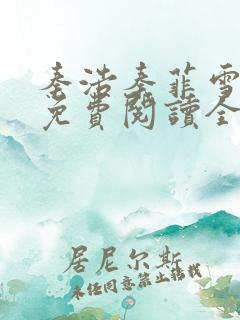 秦浩秦菲雪
免費閱讀全
居尼尔斯
未经同意禁止转载